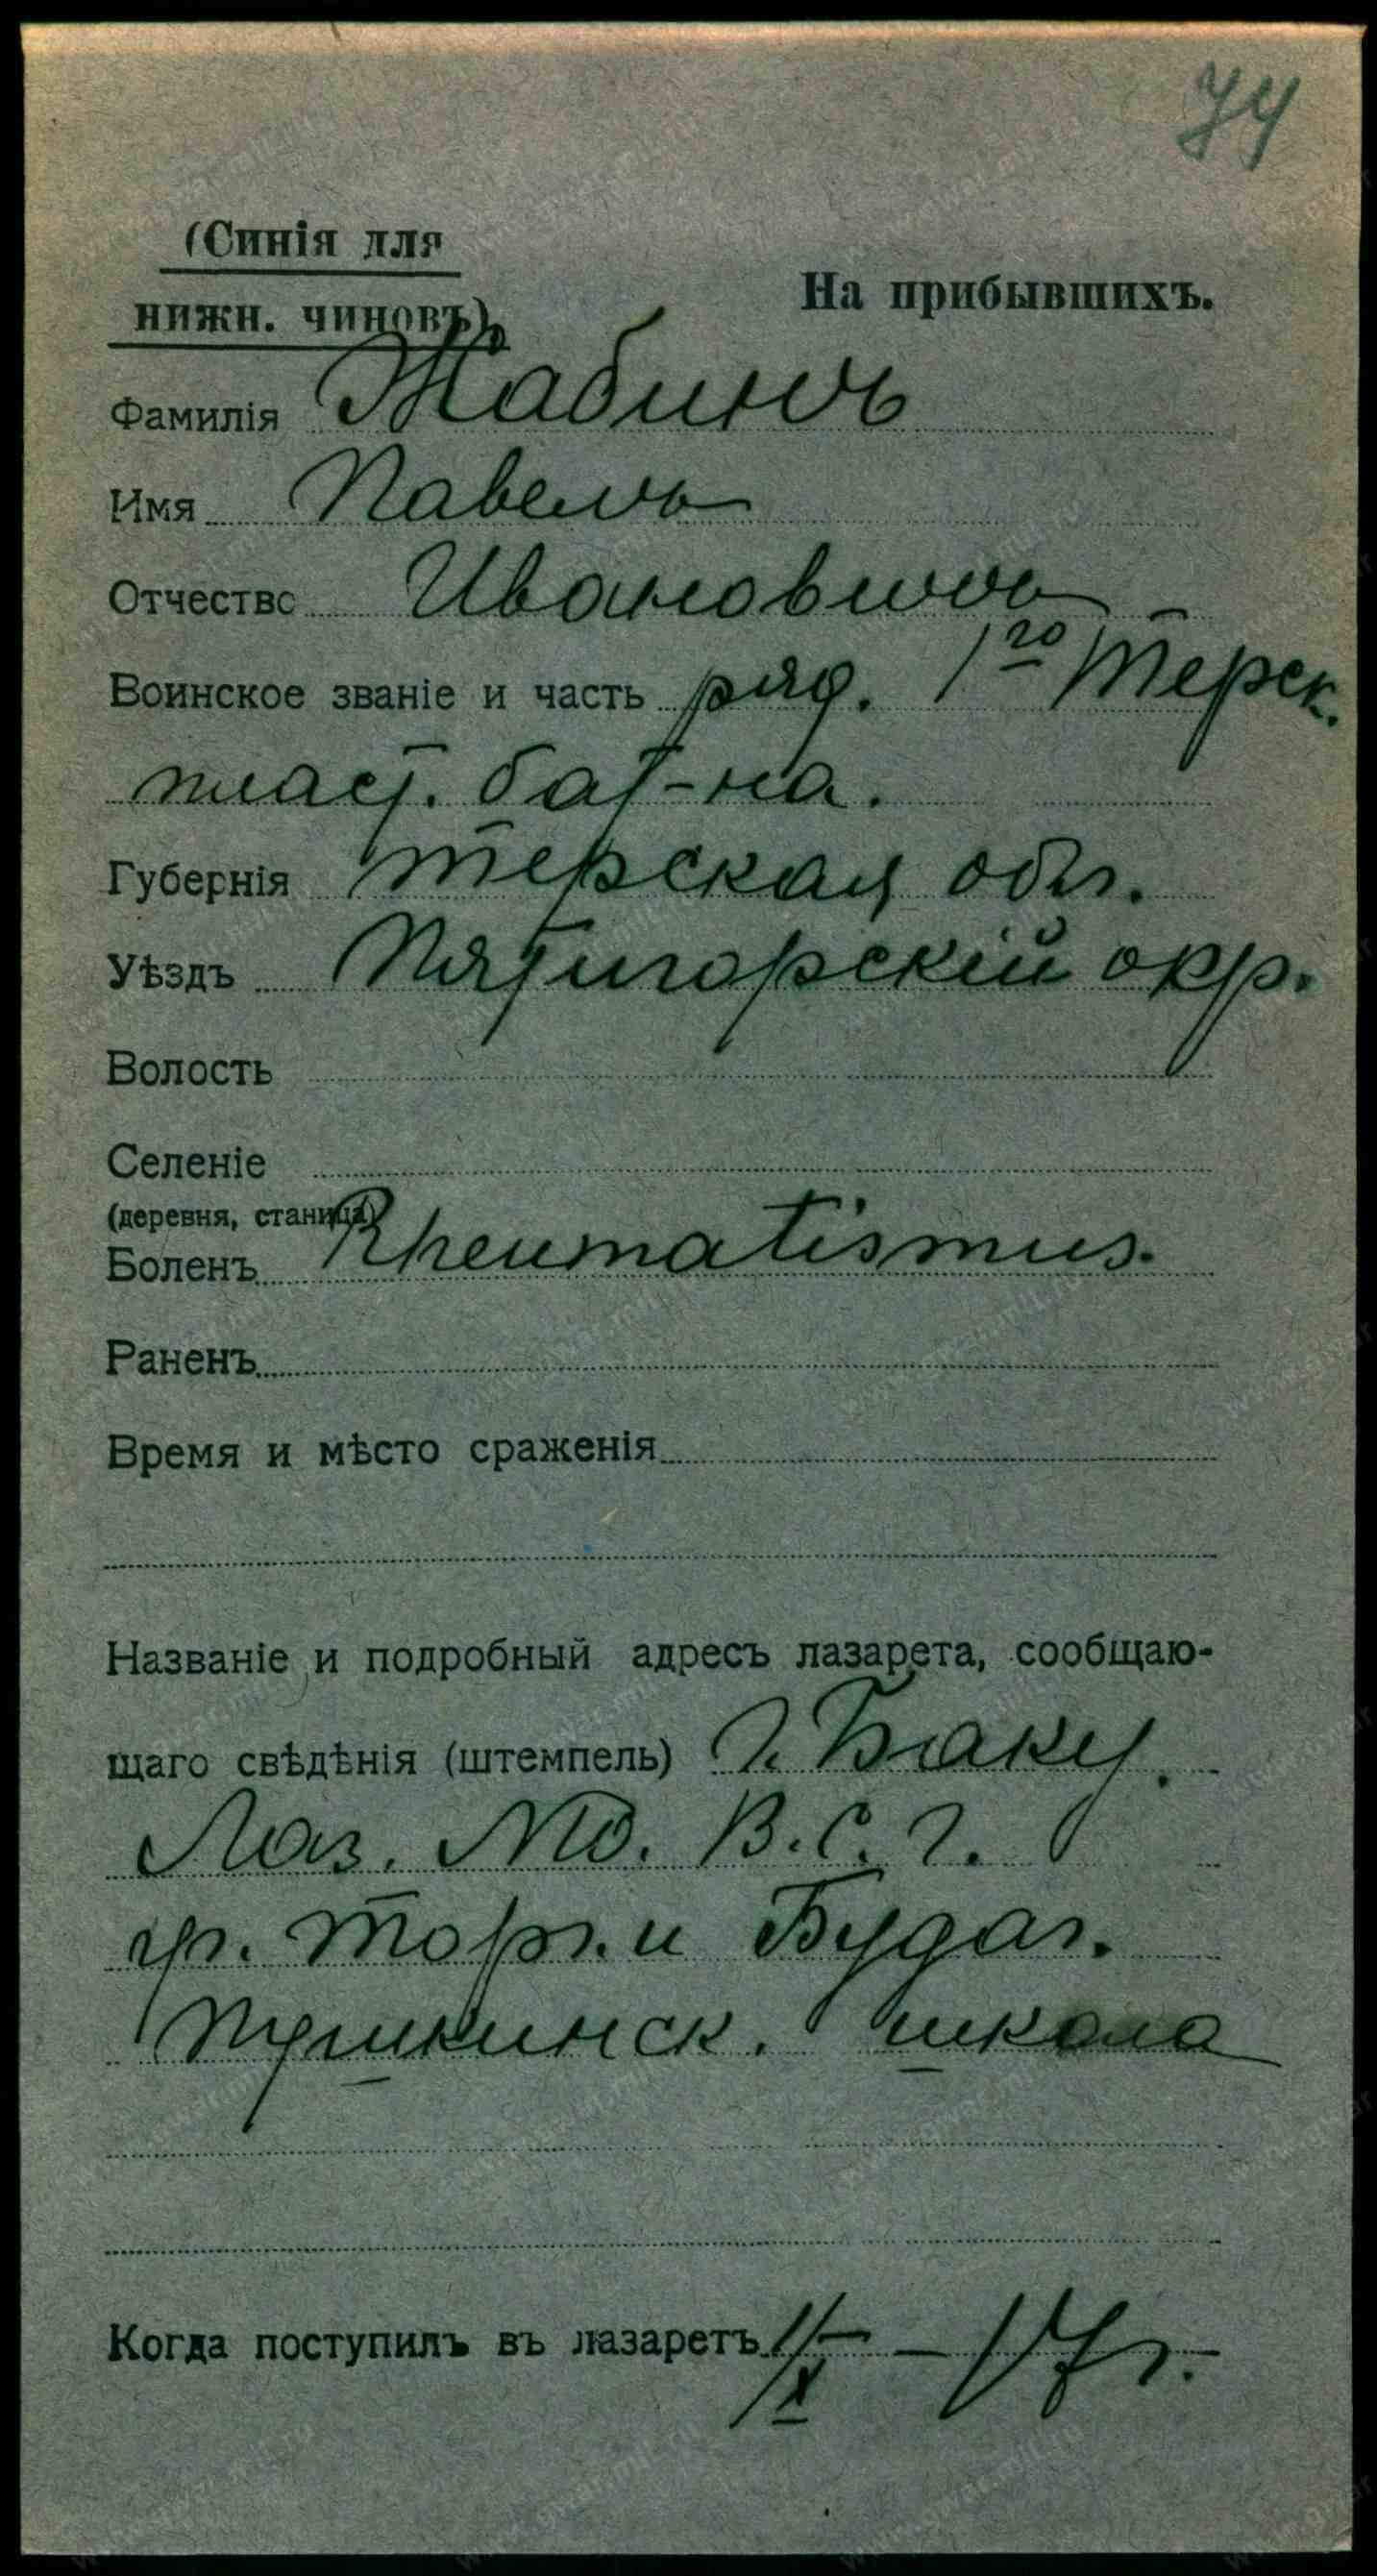 74
(Синія для
нижн. чиновъ).
На прибывшихъ.
Фамилія Жабинъ
Имя Павелъ
Отчество Ивановичъ
Воинское званіе и часть ряд. 1го Терск.
пласт. бат-на.
Губернія Терская обл.
Уѣздъ Пятигорскій окр.
Волость
Селеніе
(деревня, станица)
Боленъ Rheumatismus.
Раненъ
Время и мѣсто сраженія
Названіе и подробный адресъ лазарета, сообщаю-
щаго свѣдѣнія (штемпель) г. Баку.
Лаз. В. С. Г.
Торг. и Будаг.
Пушкинск. школа
Когда поступилъ въ лазаретъ 1/X – 17 г.